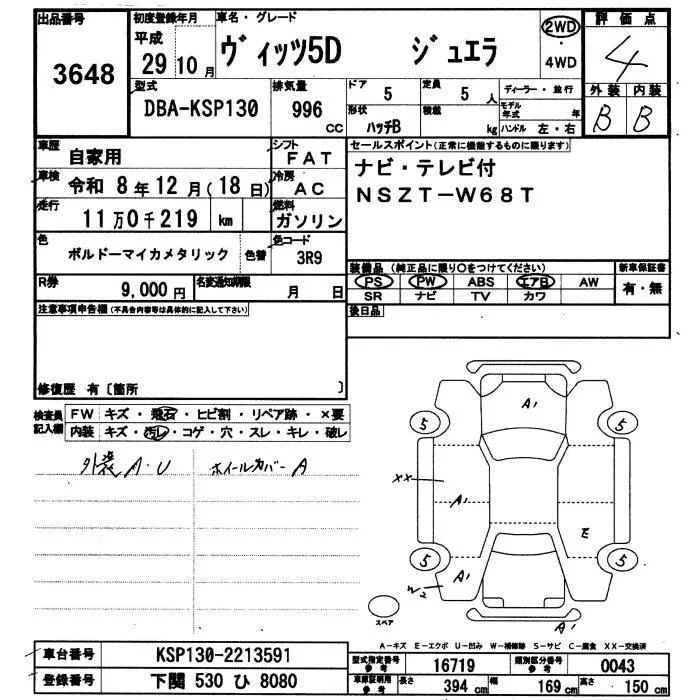 出品番号 3648
初度登録年月 平成 29 10月
車名・グレード ヴィッツ5D ジュエラ
2WD ・ 4WD
評価点 4
型式 DBA-KSP130
排気量 996 cc
ドア 5
定員 5 人
形状 ハッチB
積載 kg
ディーラー・並行
モデル年式 年
ハンドル 左・右
外装 内装
B B
車歴 自家用
シフト FAT
車検 令和 8年 12月(18日)
冷房 AC
走行 11万0千219 km
燃料 ガソリン
色 ボルドーマイカメタリック 色替
色コード 3R9
R券 9,000円
名変通知期限 月 日
セールスポイント(正常に機能するものに限ります)
ナビ・テレビ付
NSZT-W68T
装備品(純正品に限り○をつけてください)
PS PW ABS エアB AW
SR ナビ TV カワ
新車保証書 有・無
後日品
注意事項申告欄(不具合内容等は具体的に記入して下さい)
修復歴 有〔箇所 〕
検査員記入欄
FW キズ・飛石・ヒビ割・リペア跡・×要
内装 キズ・汚レ・コゲ・穴・スレ・キレ・破レ
外装 A・U ホイールカバー A
A1
5 5
XX
A1
E
5 5
A1
W2
A1
スペア
A-キズ E-エクボ U-凹み W-補修跡 S-サビ C-腐食 XX-交換済
車台番号 KSP130-2213591
登録番号 下関 530 ひ 8080
型式指定番号 参考 16719
類別区分番号 参考 0043
車庫証明用 参考 長さ 394 cm 幅 169 cm 高さ 150 cm